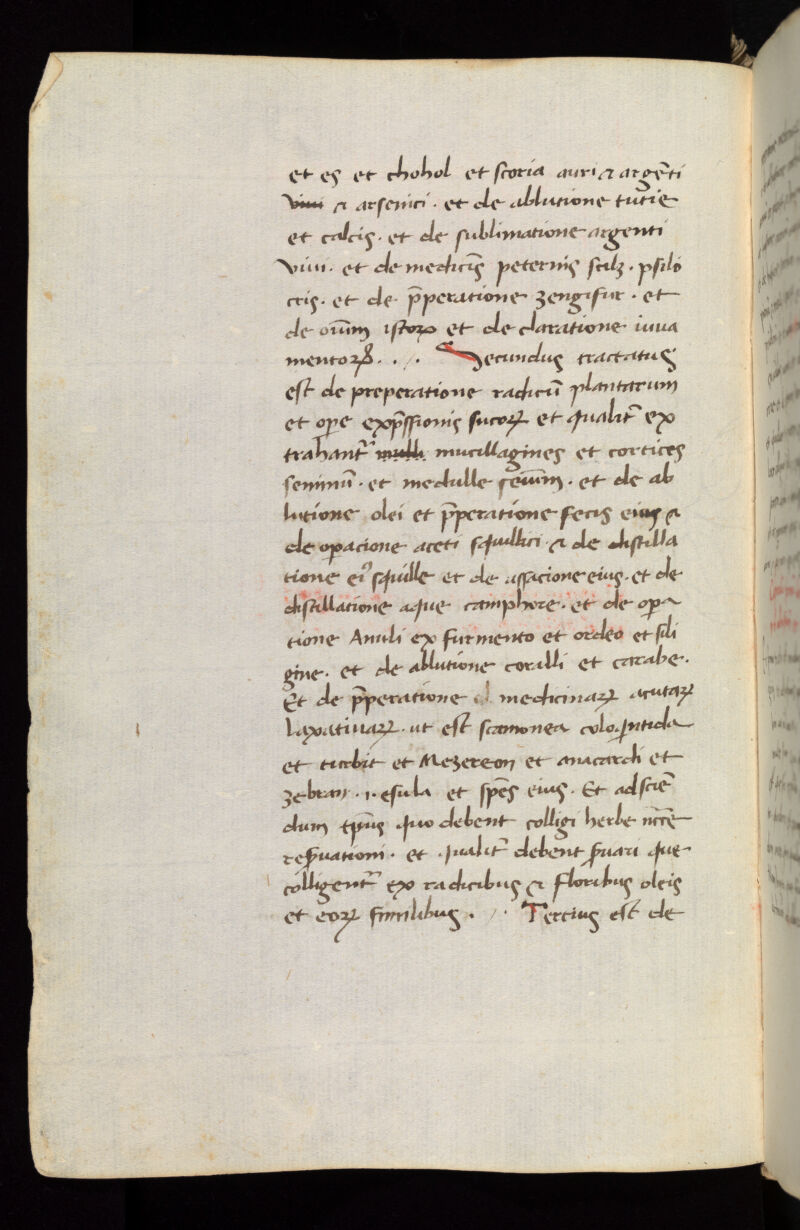 et es et chohol et scoria auri & argēti
vivi & arsenici . et de ablutione tutie
et calcis . et de sublimatione argenti
vivi . et de medicis peternis scilꝫ . psilo
cris . et de p̄peratione zengifur . et
de oīum istoꝝ et de claratione iuua
mentoꝝ . . / . Secundus tractatus
est de preperatione radicū plantarum
et oꝑe exp̄ssionis sucoꝝ et qualit̄ ex
trahant̄ mulli mucillagines et cortices
seminū . et medulle seīum . et de ab
lutione olei et p̄peratione fecis eius &
de oꝑacione aceti squillici . & de distilla
tione eiꝰ squille et de assacione eius . et de
distillatione aque camphore . et de oꝑa
tione Amili ex furmento et ordeo et sili
gine . et de ablutione coralli et carabe .
Et de p̄peratione medicinaꝝ acutaꝝ
laxatiuaꝝ . ut est scamonea coloꝗntida
et turbit et Mezereon et anacardi et
zebran . i . esula et spēs eius . Et ad sciē
dum tp̄us quo debent colligi herbe nc̄c̄e
reẜuationi . et qualit̄ debent ẜuari que
colligent̄ ex radicibus & floribus oleis
et eoꝝ similibus . / . Tercius est de